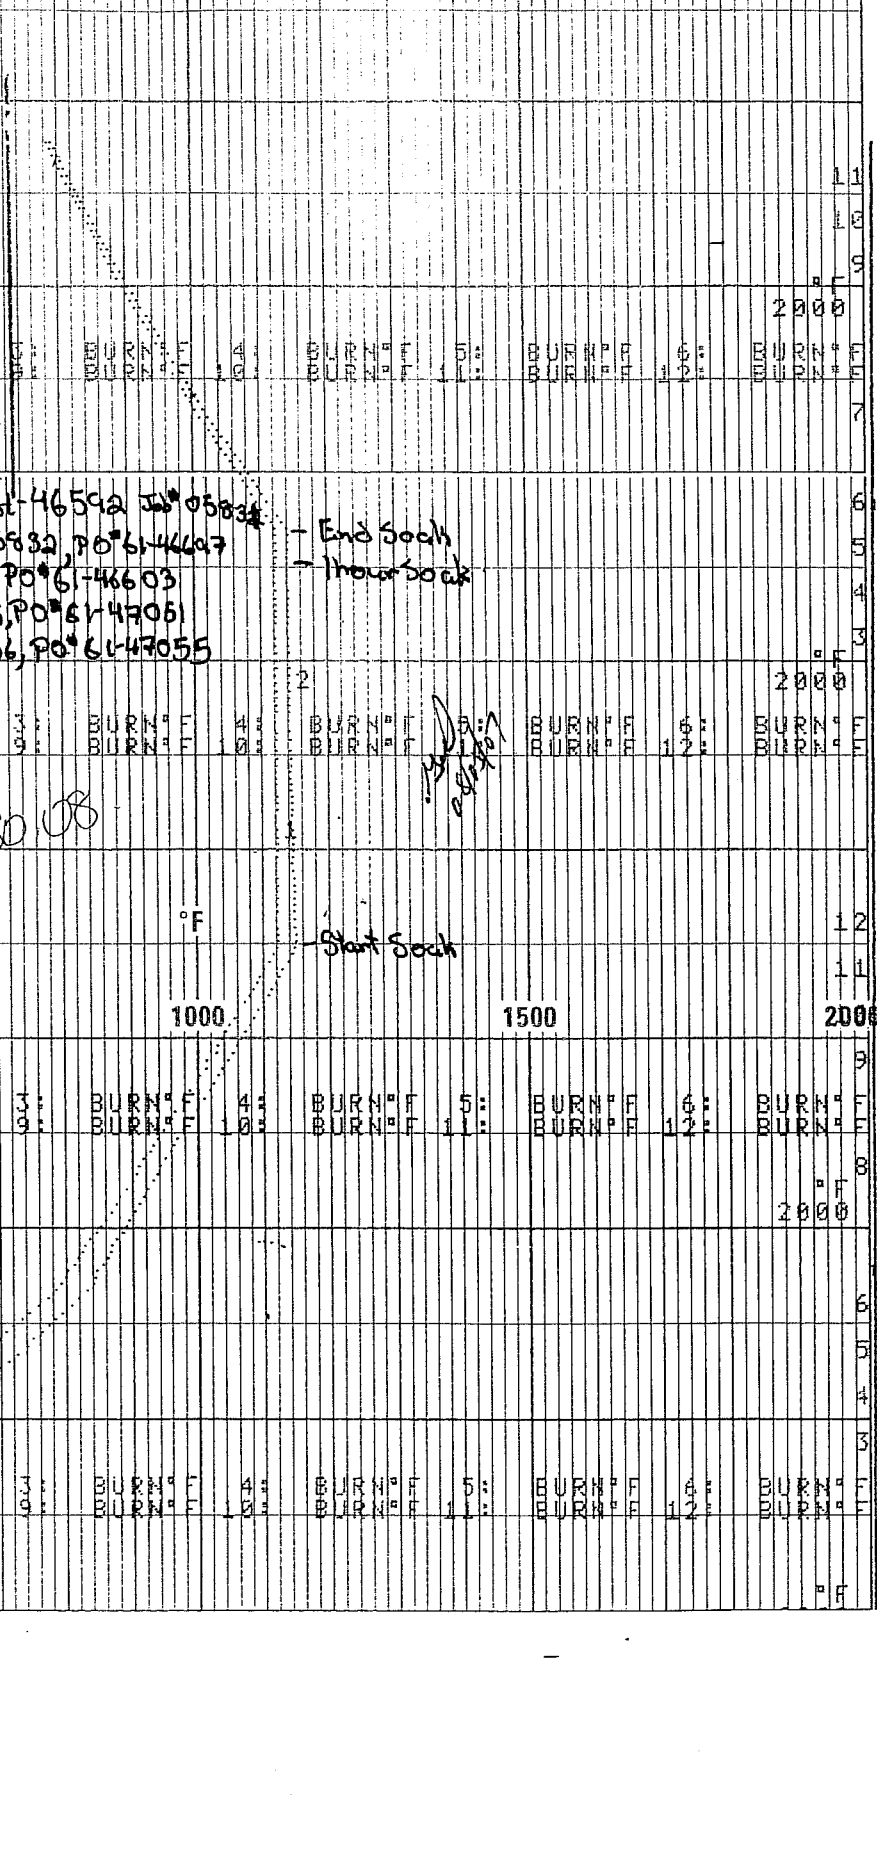 11
10
9
°F
2000
3: BURN°F 4: BURN°F 5: BURN°F 6: BURN°F
9: BURN°F 10: BURN°F 11: BURN°F 12: BURN°F
7
6
-46592 Job# 05834
5
- End Soak
0832, PO#61-46697
- 1 hour Soak
PO#61-46603
4
PO#61-47061
3
PO#61-47055
°F
2000
2
3: BURN°F 4: BURN°F 5: BURN°F 6: BURN°F
9: BURN°F 10: BURN°F 11: BURN°F 12: BURN°F
08
°F
12
- Start Soak
11
1000 1500 2000
9
3: BURN°F 4: BURN°F 5: BURN°F 6: BURN°F
9: BURN°F 10: BURN°F 11: BURN°F 12: BURN°F
8
°F
2000
6
5
4
3
3: BURN°F 4: BURN°F 5: BURN°F 6: BURN°F
9: BURN°F 10: BURN°F 11: BURN°F 12: BURN°F
°F